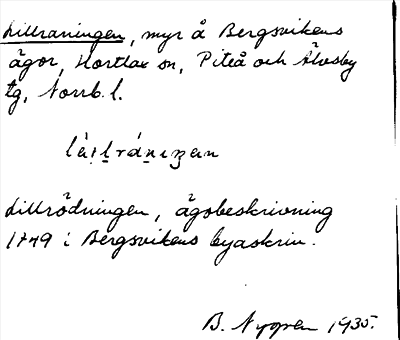 Lillraningen, myr å Bergsvikens
ägor, Hortlax sn, Piteå och Älvsby
tg, Norrb. l.
Lillrödningen, ägobeskrivning
1779 i Bergsvikens byaskrin.
B. Nygren 1935.